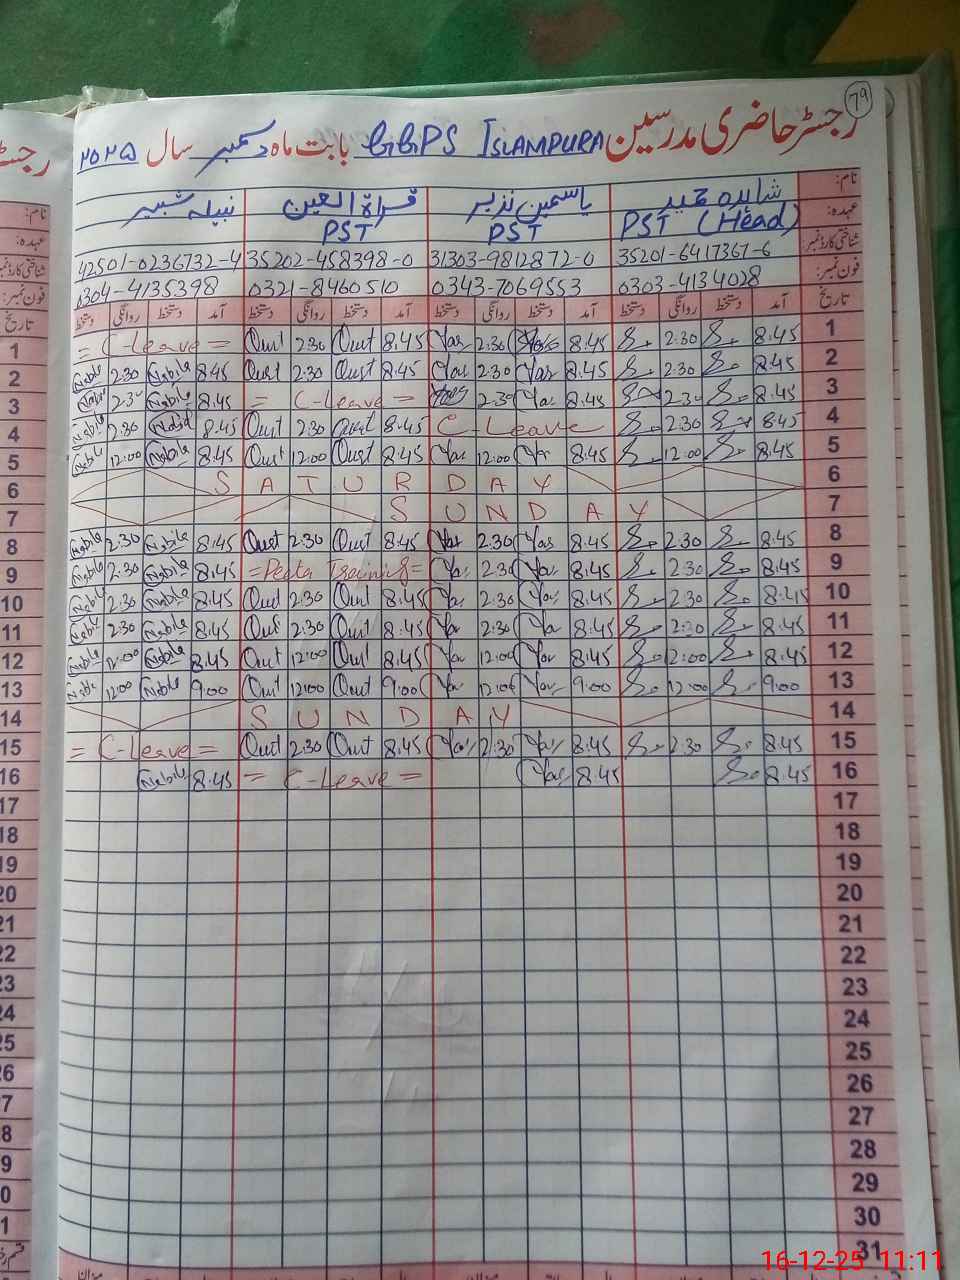 79
رجسٹر حاضری مدرسین GGPS ISLAMPURA بابت ماہ دسمبر سال ۲۰۲۵
نام: یاسمین نذیر قراۃ العین نبیلہ شبیر
عہدہ: PST (Head) PST PST
شناختی کارڈ نمبر: 35201-6417367-6 31303-9812872-0 35202-458398-0 42501-0236732-4
فون نمبر: 0303-4134028 0343-7069553 0321-8460510 0304-4135398
تاریخ آمد دستخط روانگی دستخط آمد دستخط روانگی دستخط آمد دستخط روانگی دستخط آمد دستخط روانگی دستخط
1 8.45 2:30 8.45 2:30 8.45 Qurt 2:30 Qurt = C-Leave =
2 8.45 2:30 8.45 Yas 2:30 Yas 8.45 Qurt 2:30 Qurt 8.45 Nabile 2:30 Nabile
3 8.45 2:30 8.45 Yas 2:30 Yas = C-Leave = 8.45 Nabile 2:30 Nabile
4 8.45 2:30 C-Leave 8.45 Qurt 2:30 Qurt 8.45 2:30 Nabile
5 8.45 12:00 8.45 Yas 12:00 Yas 8.45 Qurt 12:00 Qurt 8.45 Nabile 12:00 Nabile
6 SATURDAY
7 SUNDAY
8 8.45 2:30 8.45 Yas 2:30 Yas 8.45 Qurt 2:30 Qurt 8.45 Nabile 2:30 Nabile
9 8.45 2:30 8.45 Yas 2:30 Yas = Training = 8.45 Nabile 2:30 Nabile
10 8.45 2:30 8.45 Yas 2:30 Yas 8.45 Qurt 2:30 Qurt 8.45 Nabile 2:30 Nabile
11 8.45 2:30 8.45 Yas 2:30 Yas 8.45 Qurt 2:30 Qurt 8.45 Nabile 2:30 Nabile
12 8.45 12:00 8.45 Yas 12:00 Yas 8.45 Qurt 12:00 Qurt 8.45 Nabile 12:00 Nabile
13 9:00 12:00 9:00 Yas 12:00 Yas 9:00 Qurt 12:00 Qurt 9:00 Nabile 12:00 Nabile
14 SUNDAY
15 8.45 2:30 8.45 Yas 2:30 Yas 8.45 Qurt 2:30 Qurt = C-Leave =
16 8.45 8.45 Yas = C-Leave = 8.45 Nabile
17
18
19
20
21
22
23
24
25
26
27
28
29
30
31
16-12-25 11:11